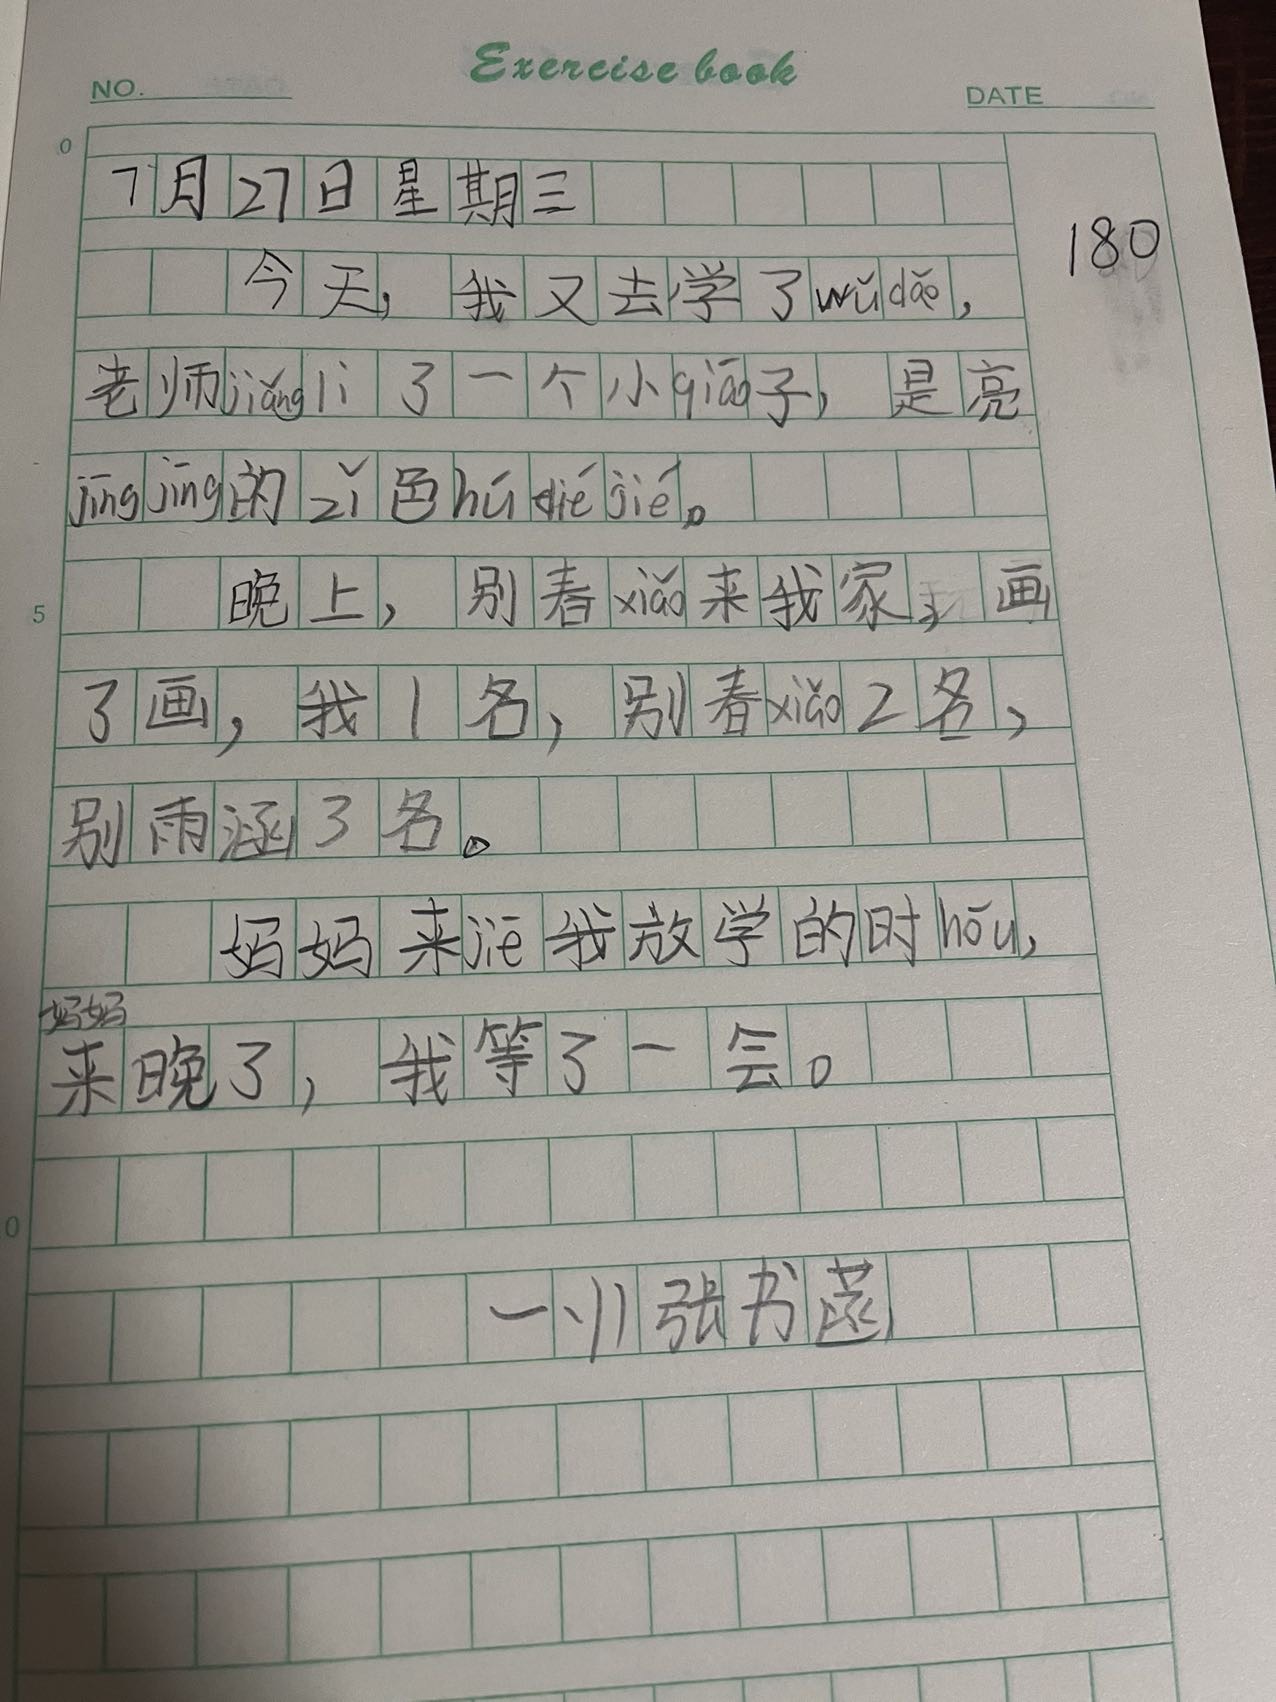 Exercise book
NO.
DATE
0
7月27日星期三
180
今天，我又去学了wǔdǎo，
老师jiǎngli了一个小qiǎo子，是亮
jīngjīng的zǐ色húdiéjié。
5
晚上，别春xiǎo来我家，画
了画，我1名，别春xiǎo2名，
别雨涵3名。
妈妈来jiē我放学的时hōu，
妈妈
来晚了，我等了一会。
0
一小张书菡